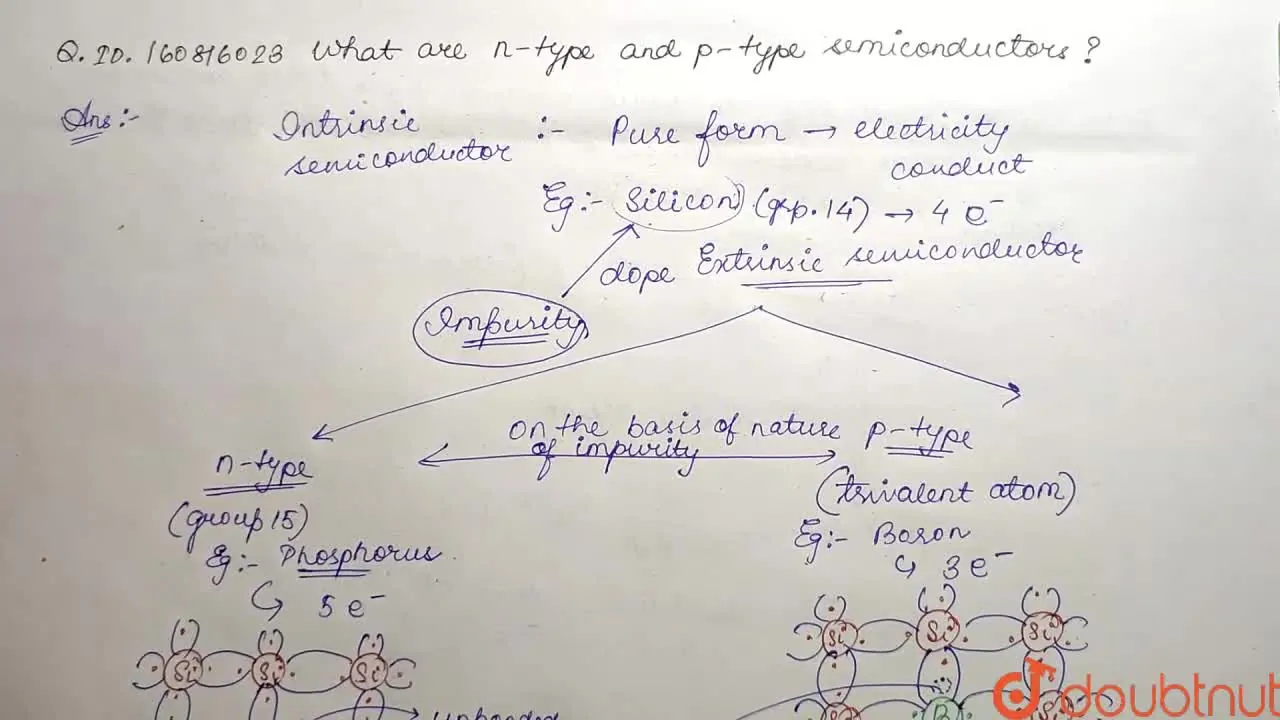 Q. ID. 160816023 What are n-type and p-type semiconductors?
Ans:-
Intrinsic semiconductor :- Pure form → electricity conduct
Eg:- Silicon (grp. 14) → 4 e⁻
dope Extrinsic semiconductor
Impurity
on the basis of nature of impurity
n-type
(group 15)
Eg:- Phosphorus
↳ 5 e⁻
p-type
(trivalent atom)
Eg:- Boron
↳ 3 e⁻
Si Si Si
Si Si Si
unbonded
B
doubtnut